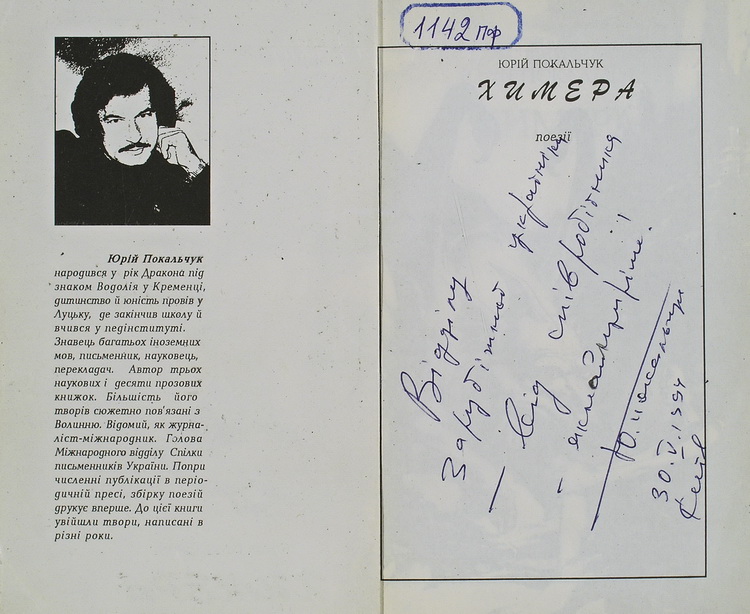 Юрій Покальчук
народився у рік Дракона під
знаком Водолія у Кременці,
дитинство й юність провів у
Луцьку, де закінчив школу й
вчився у педінституті.
Знавець багатьох іноземних
мов, письменник, науковець,
перекладач. Автор трьох
наукових і десяти прозових
книжок. Більшість його
творів сюжетно пов'язані з
Волинню. Відомий, як журна-
ліст-міжнародник. Голова
Міжнародного відділу Спілки
письменників України. Попри
численні публікації в періо-
дичній пресі, збірку поезій
друкує вперше. До цієї книги
увійшли твори, написані в
різні роки.
1142 Пф
ЮРІЙ ПОКАЛЬЧУК
ХИМЕРА
поезії
Відділу
зарубіжної україніки
— від співробітника
- якнайщиріше!
Ю. Покальчук
30.V.1994
Київ